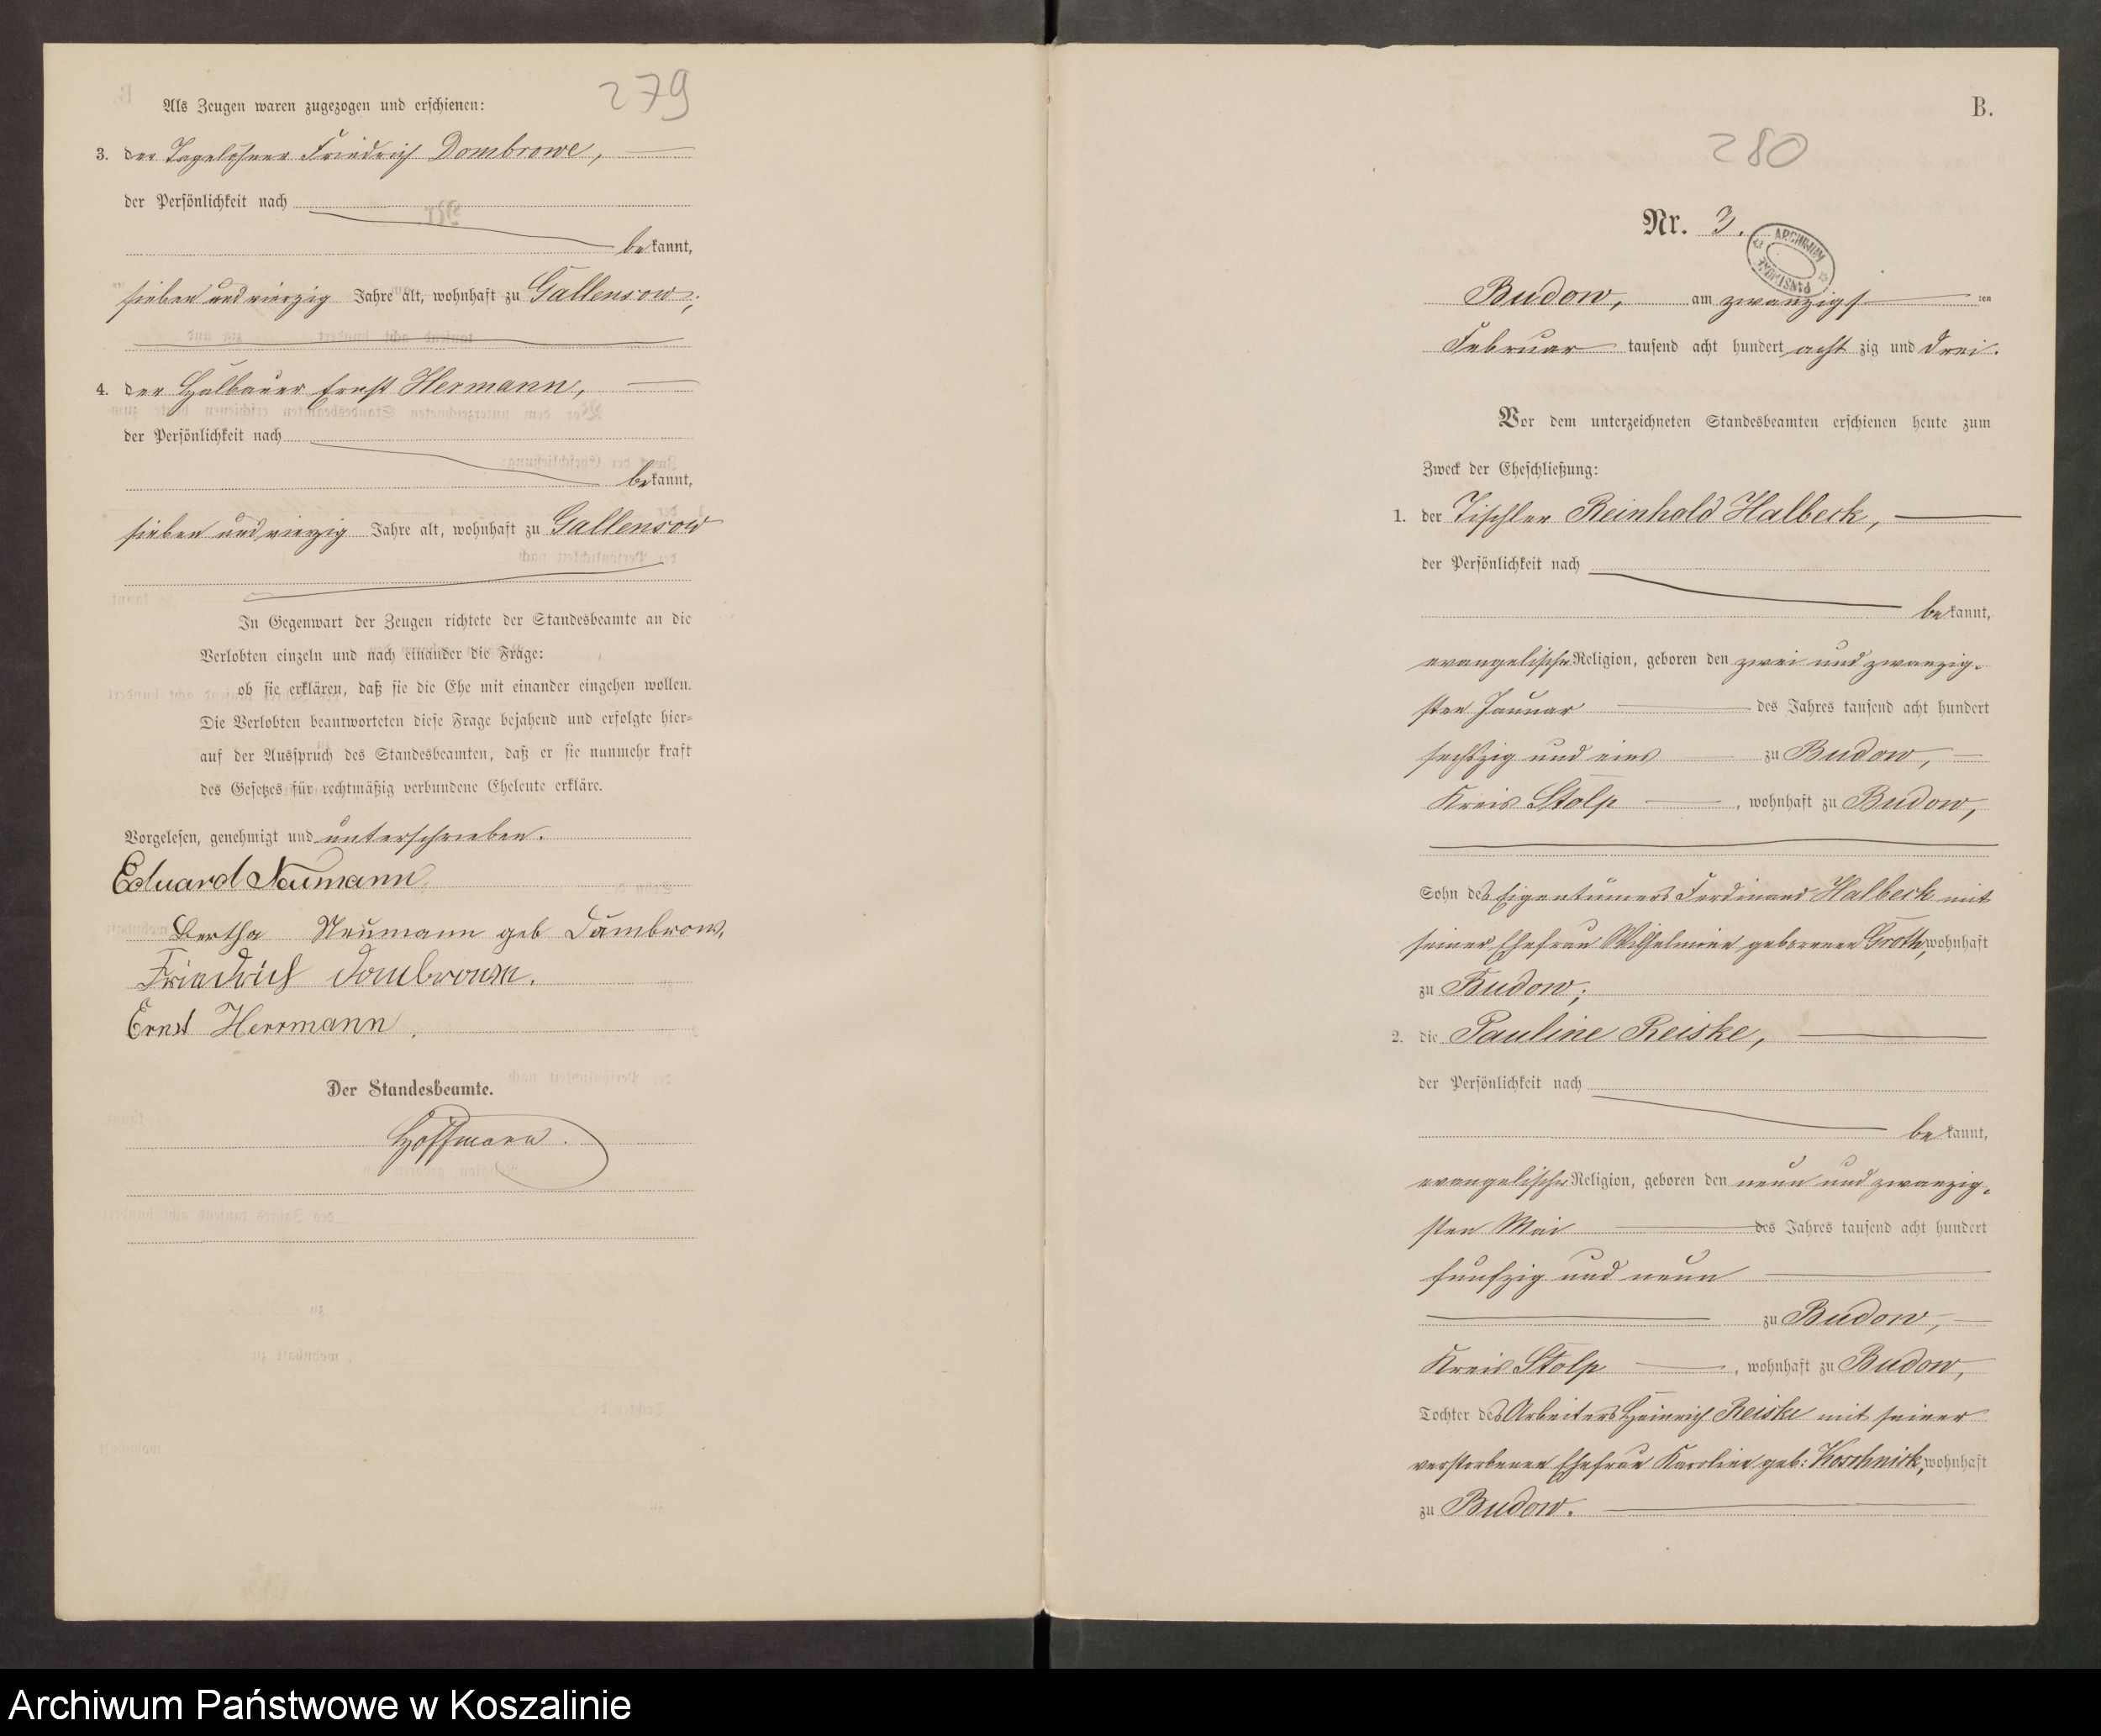 279
Als Zeugen waren zugezogen und erschienen:
3. der Tagelöhner Friedrich Dombrowe,
der Persönlichkeit nach
bekannt,
sieben und vierzig Jahre alt, wohnhaft zu Gallensow;
4. der Halbauer Ernst Hermann,
der Persönlichkeit nach
bekannt,
sieben und vierzig Jahre alt, wohnhaft zu Gallensow
In Gegenwart der Zeugen richtete der Standesbeamte an die
Verlobten einzeln und nach einander die Frage:
ob sie erklären, daß sie die Ehe mit einander eingehen wollen.
Die Verlobten beantworteten diese Frage bejahend und erfolgte hier=
auf der Ausspruch des Standesbeamten, daß er sie nunmehr kraft
des Gesetzes für rechtmäßig verbundene Eheleute erkläre.
Vorgelesen, genehmigt und unterschrieben.
Eduard Neumann
Bertha Neumann geb Dambrow,
Friedrich
Ernst Herrmann.
Der Standesbeamte.
Hoffmann.
B.
280
Nr. 3.
ARCHIWUM PAŃSTWOWE
Budow, am zwanzigsten
Februar tausend acht hundert achtzig und drei.
Vor dem unterzeichneten Standesbeamten erschienen heute zum
Zweck der Eheschließung:
1. der Tischler Reinhold Halbeck,
der Persönlichkeit nach
bekannt,
evangelischer Religion, geboren den zwei und zwanzig=
sten Januar des Jahres tausend acht hundert
sechszig und eins zu Budow,
Kreis Stolp, wohnhaft zu Budow,
Sohn des Eigentümers Ferdinand Halbeck mit
seiner Ehefrau Wilhelmine geborenen Groth, wohnhaft
zu Budow;
2. die Pauline Reiske,
der Persönlichkeit nach
bekannt,
evangelischer Religion, geboren den neun und zwanzig=
sten Mai des Jahres tausend acht hundert
funfzig und neun
zu Budow,
Kreis Stolp, wohnhaft zu Budow,
Tochter des Arbeiters Heinrich Reiske mit seiner
verstorbenen Ehefrau Karoline geb: Koschnick, wohnhaft
zu Budow.
Archiwum Państwowe w Koszalinie